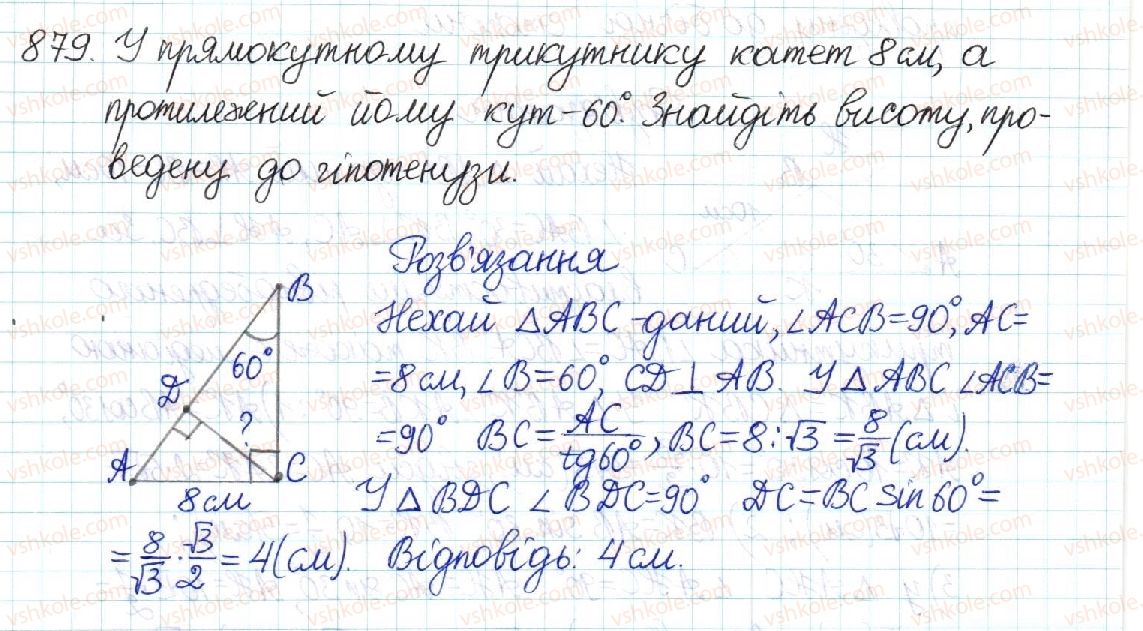 879. У прямокутному трикутнику катет 8 см, а
протилежний йому кут - 60°. Знайдіть висоту, про-
ведену до гіпотенузи.
Розв'язання
B
Нехай △ABC - даний, ∠ACB=90°, AC=
60°
=8 см, ∠B=60°, CD⊥AB. У △ABC ∠ACB=
D
?
=90° BC=AC/tg60°, BC=8:√3=8/√3 (см).
A
C
8 см
У △BDC ∠BDC=90° DC=BC sin 60°=
=8/√3·√3/2=4(см). Відповідь: 4 см.